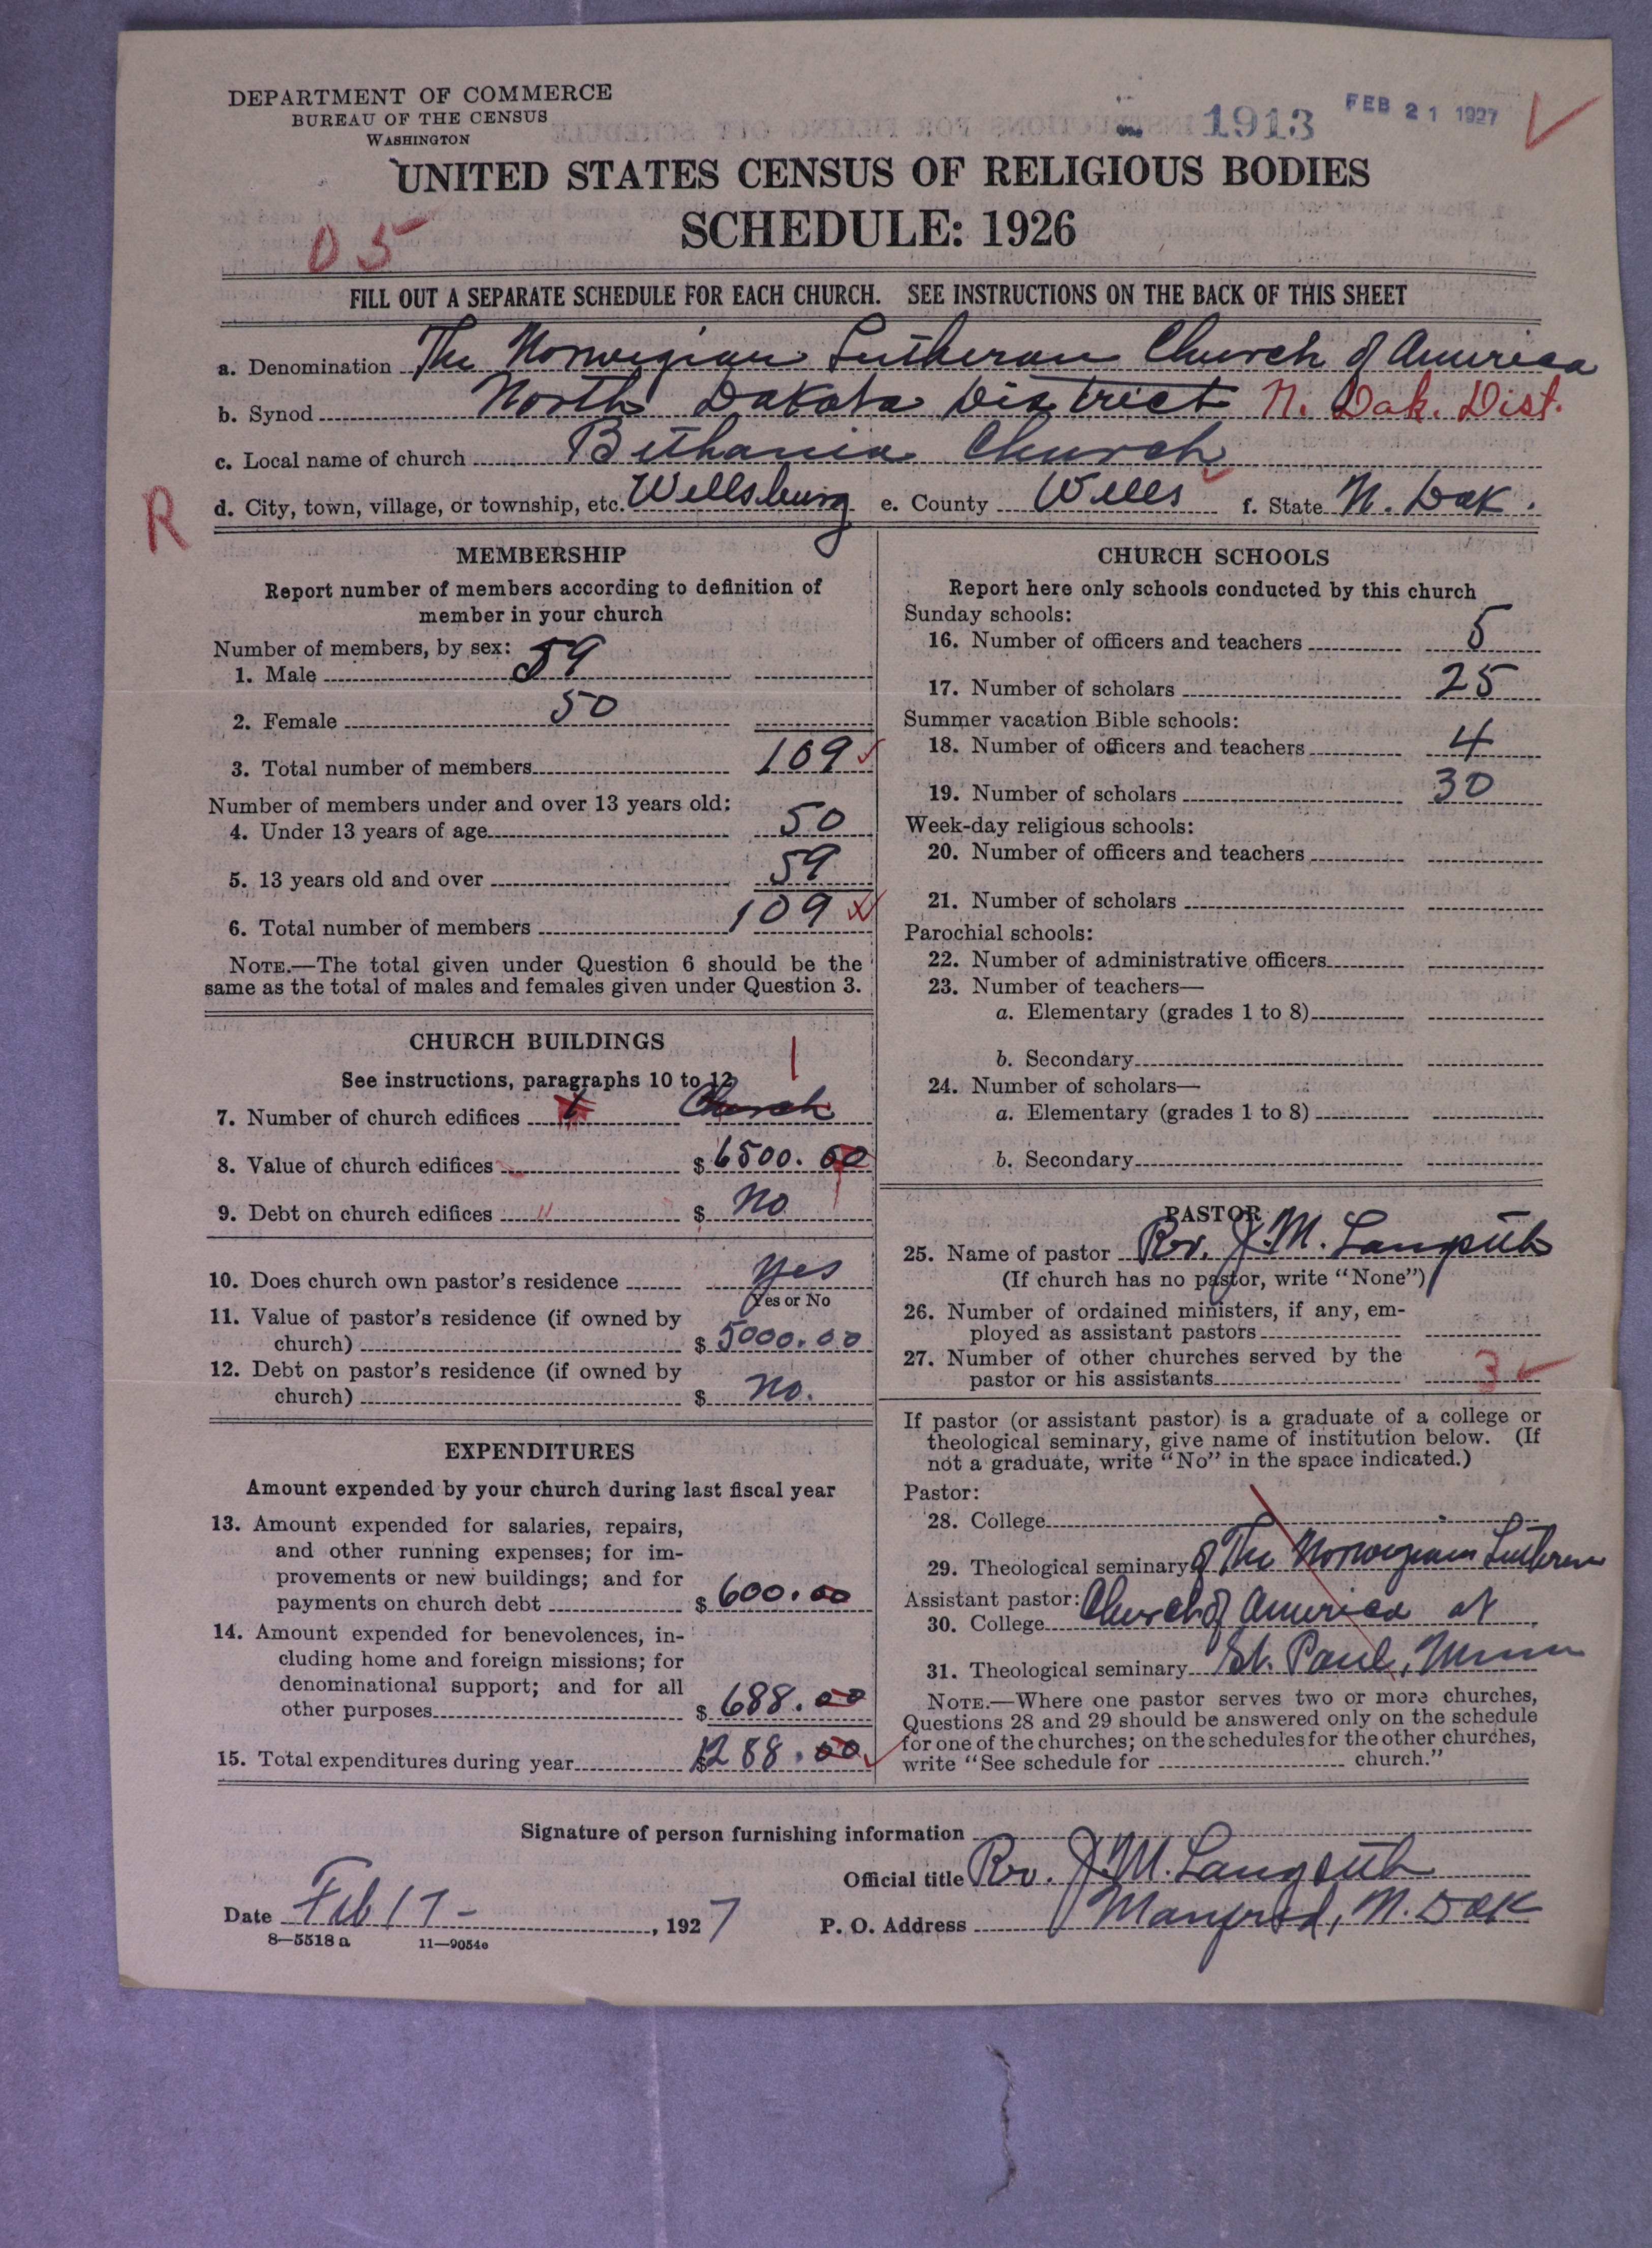 DEPARTMENT OF COMMERCE
BUREAU OF THE CENSUS
WASHINGTON
1913
FEB 21 1927
UNITED STATES CENSUS OF RELIGIOUS BODIES
SCHEDULE: 1926
05
FILL OUT A SEPARATE SCHEDULE FOR EACH CHURCH. SEE INSTRUCTIONS ON THE BACK OF THIS SHEET
a. Denomination The Norwegian Lutheran Church of America
b. Synod North Dakota District N. Dak. Dist.
c. Local name of church Bethania Church
R
d. City, town, village, or township, etc. Wellsburg e. County Wells f. State N. Dak.
MEMBERSHIP
Report number of members according to definition of
member in your church
Number of members, by sex:
1. Male 59
2. Female 50
3. Total number of members 109
Number of members under and over 13 years old:
4. Under 13 years of age 50
5. 13 years old and over 59
6. Total number of members 109
NOTE.—The total given under Question 6 should be the
same as the total of males and females given under Question 3.
CHURCH BUILDINGS
See instructions, paragraphs 10 to 12
1
7. Number of church edifices 1 Church
8. Value of church edifices $ 6500.00
9. Debt on church edifices " $ No
10. Does church own pastor's residence Yes
Yes or No
11. Value of pastor's residence (if owned by
church) $ 5000.00
12. Debt on pastor's residence (if owned by
church) $ No.
EXPENDITURES
Amount expended by your church during last fiscal year
13. Amount expended for salaries, repairs,
and other running expenses; for im-
provements or new buildings; and for
payments on church debt $ 600.00
14. Amount expended for benevolences, in-
cluding home and foreign missions; for
denominational support; and for all
other purposes $ 688.00
15. Total expenditures during year $ 1288.00
CHURCH SCHOOLS
Report here only schools conducted by this church
Sunday schools:
16. Number of officers and teachers 5
17. Number of scholars 25
Summer vacation Bible schools:
18. Number of officers and teachers 4
19. Number of scholars 30
Week-day religious schools:
20. Number of officers and teachers
21. Number of scholars
Parochial schools:
22. Number of administrative officers
23. Number of teachers—
a. Elementary (grades 1 to 8)
b. Secondary
24. Number of scholars—
a. Elementary (grades 1 to 8)
b. Secondary
PASTOR
25. Name of pastor Rev. J. M.
(If church has no pastor, write "None")
26. Number of ordained ministers, if any, em-
ployed as assistant pastors
27. Number of other churches served by the
pastor or his assistants 3
If pastor (or assistant pastor) is a graduate of a college or
theological seminary, give name of institution below. (If
not a graduate, write "No" in the space indicated.)
Pastor:
28. College
29. Theological seminary of The Norwegian Lutheran
Assistant pastor:
30. College Church of America at
31. Theological seminary St. Paul, Minn
NOTE.—Where one pastor serves two or more churches,
Questions 28 and 29 should be answered only on the schedule
for one of the churches; on the schedules for the other churches,
write "See schedule for church."
Signature of person furnishing information
Official title Rev. J. M.
Date Feb 17 - , 1927 P. O. Address Manfred, N. Dak
8—5518 a 11—9054c